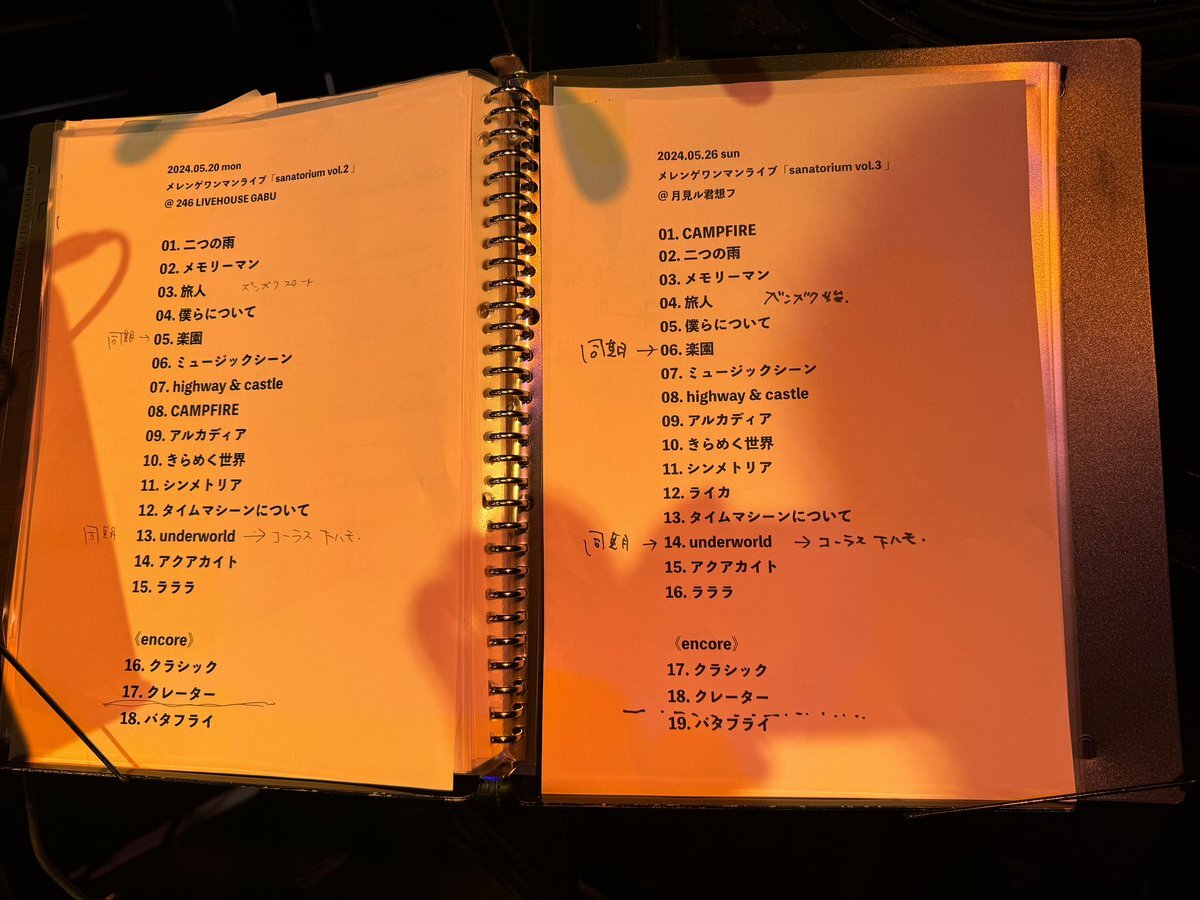 2024.05.20 mon
メレンゲワンマンライブ「sanatorium vol.2 」
@ 246 LIVEHOUSE GABU
01. 二つの雨
02. メモリーマン
03. 旅人 ズンズクスタート
04. 僕らについて
同期 → 05. 楽園
06. ミュージックシーン
07. highway & castle
08. CAMPFIRE
09. アルカディア
10. きらめく世界
11. シンメトリア
12. タイムマシーンについて
同期 13. underworld → コーラス 下ハモ.
14. アクアカイト
15. ラララ
《encore》
16. クラシック
17. クレーター
18. バタフライ
2024.05.26 sun
メレンゲワンマンライブ「sanatorium vol.3 」
@ 月見ル君想フ
01. CAMPFIRE
02. 二つの雨
03. メモリーマン
04. 旅人 ズンズク始.
05. 僕らについて
同期 → 06. 楽園
07. ミュージックシーン
08. highway & castle
09. アルカディア
10. きらめく世界
11. シンメトリア
12. ライカ
13. タイムマシーンについて
同期 → 14. underworld → コーラス 下ハモ.
15. アクアカイト
16. ラララ
《encore》
17. クラシック
18. クレーター
19. バタフライ